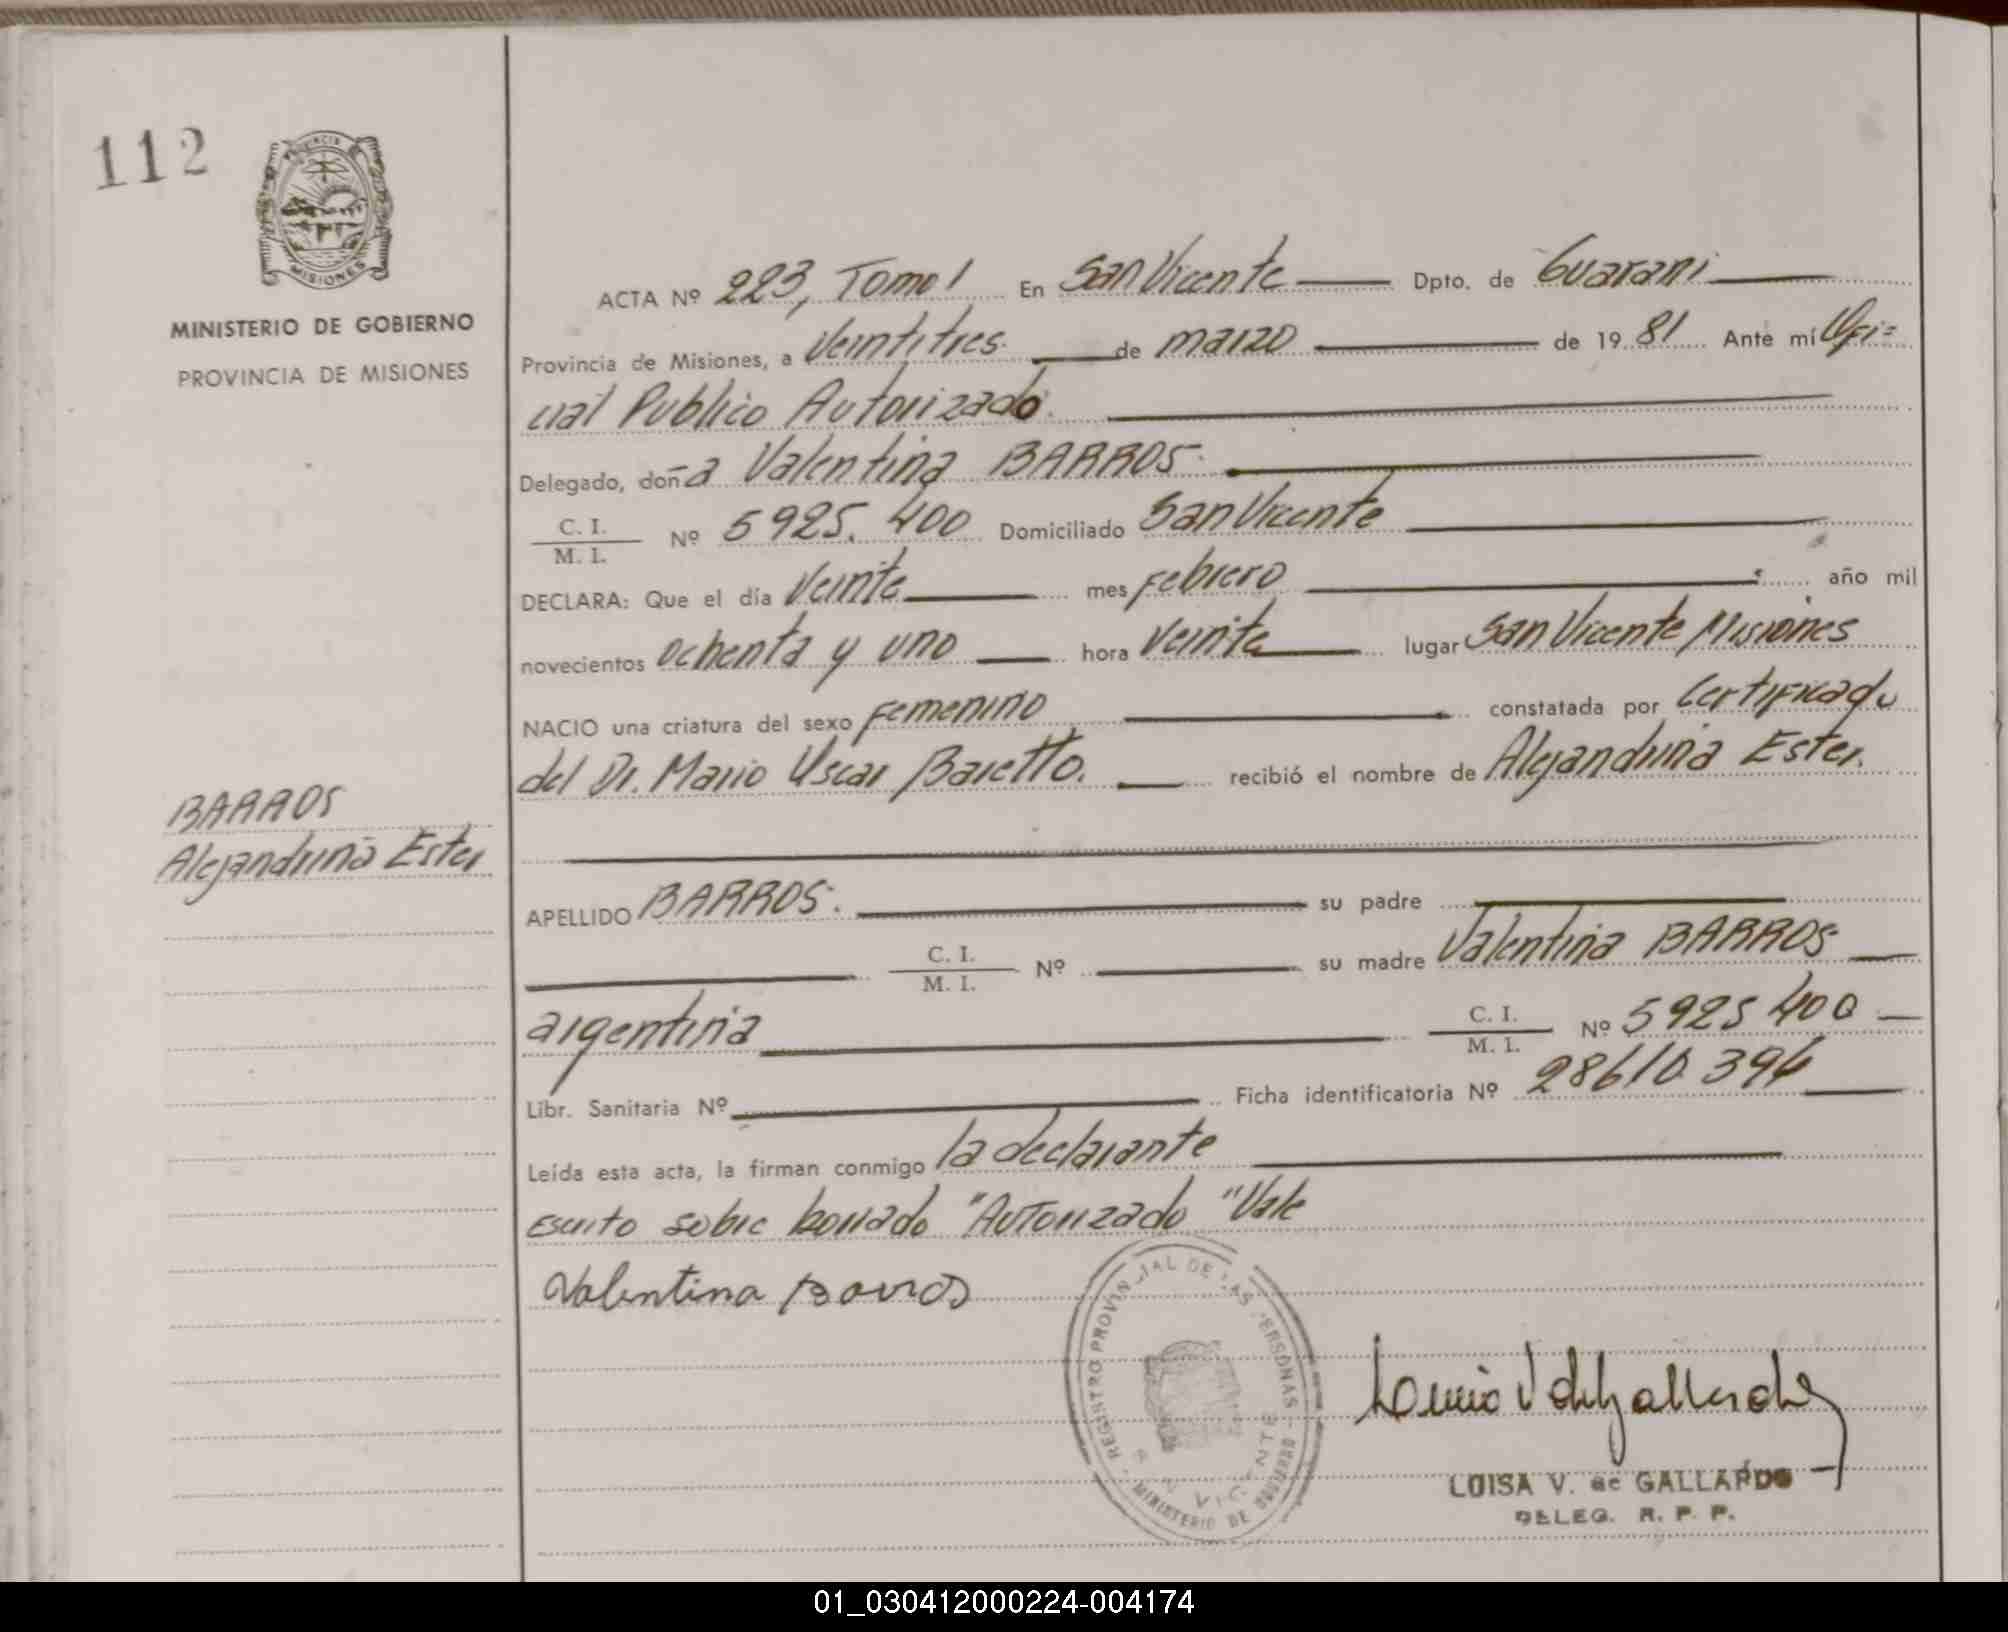 112
PROVINCIA DE
MISIONES
MINISTERIO DE GOBIERNO
PROVINCIA DE MISIONES
ACTA Nº 223, Tomo I En San Vicente Dpto. de Guarani
Provincia de Misiones, a Veintitres de marzo de 19 81 Ante mí Ofi=
cial Publico Autorizado.
Delegado, doña Valentina BARROS.
C. I.
M. I. Nº 5925.400 Domiciliado San Vicente
DECLARA: Que el día Veinte mes Febrero año mil
novecientos ochenta y uno hora Veinte lugar San Vicente Misiones
NACIO una criatura del sexo Femenino constatada por Certificado
del Dr. Mario Oscar Baretto. recibió el nombre de Alejandrina Ester.
BARROS
Alejandrina Ester
APELLIDO BARROS. su padre
C. I.
M. I. Nº su madre Valentina BARROS
argentina C. I.
M. I. Nº 5925400
Libr. Sanitaria Nº Ficha identificatoria Nº 28610394
Leída esta acta, la firman conmigo la declarante
Escrito sobre borrado "Autorizado" Vale
Valentina Barros
REGISTRO PROVINCIAL DE LAS PERSONAS
MINISTERIO DE GOBIERNO
SAN VICENTE
LUISA V. de GALLARDO
DELEG. R. P. P.
01_030412000224-004174